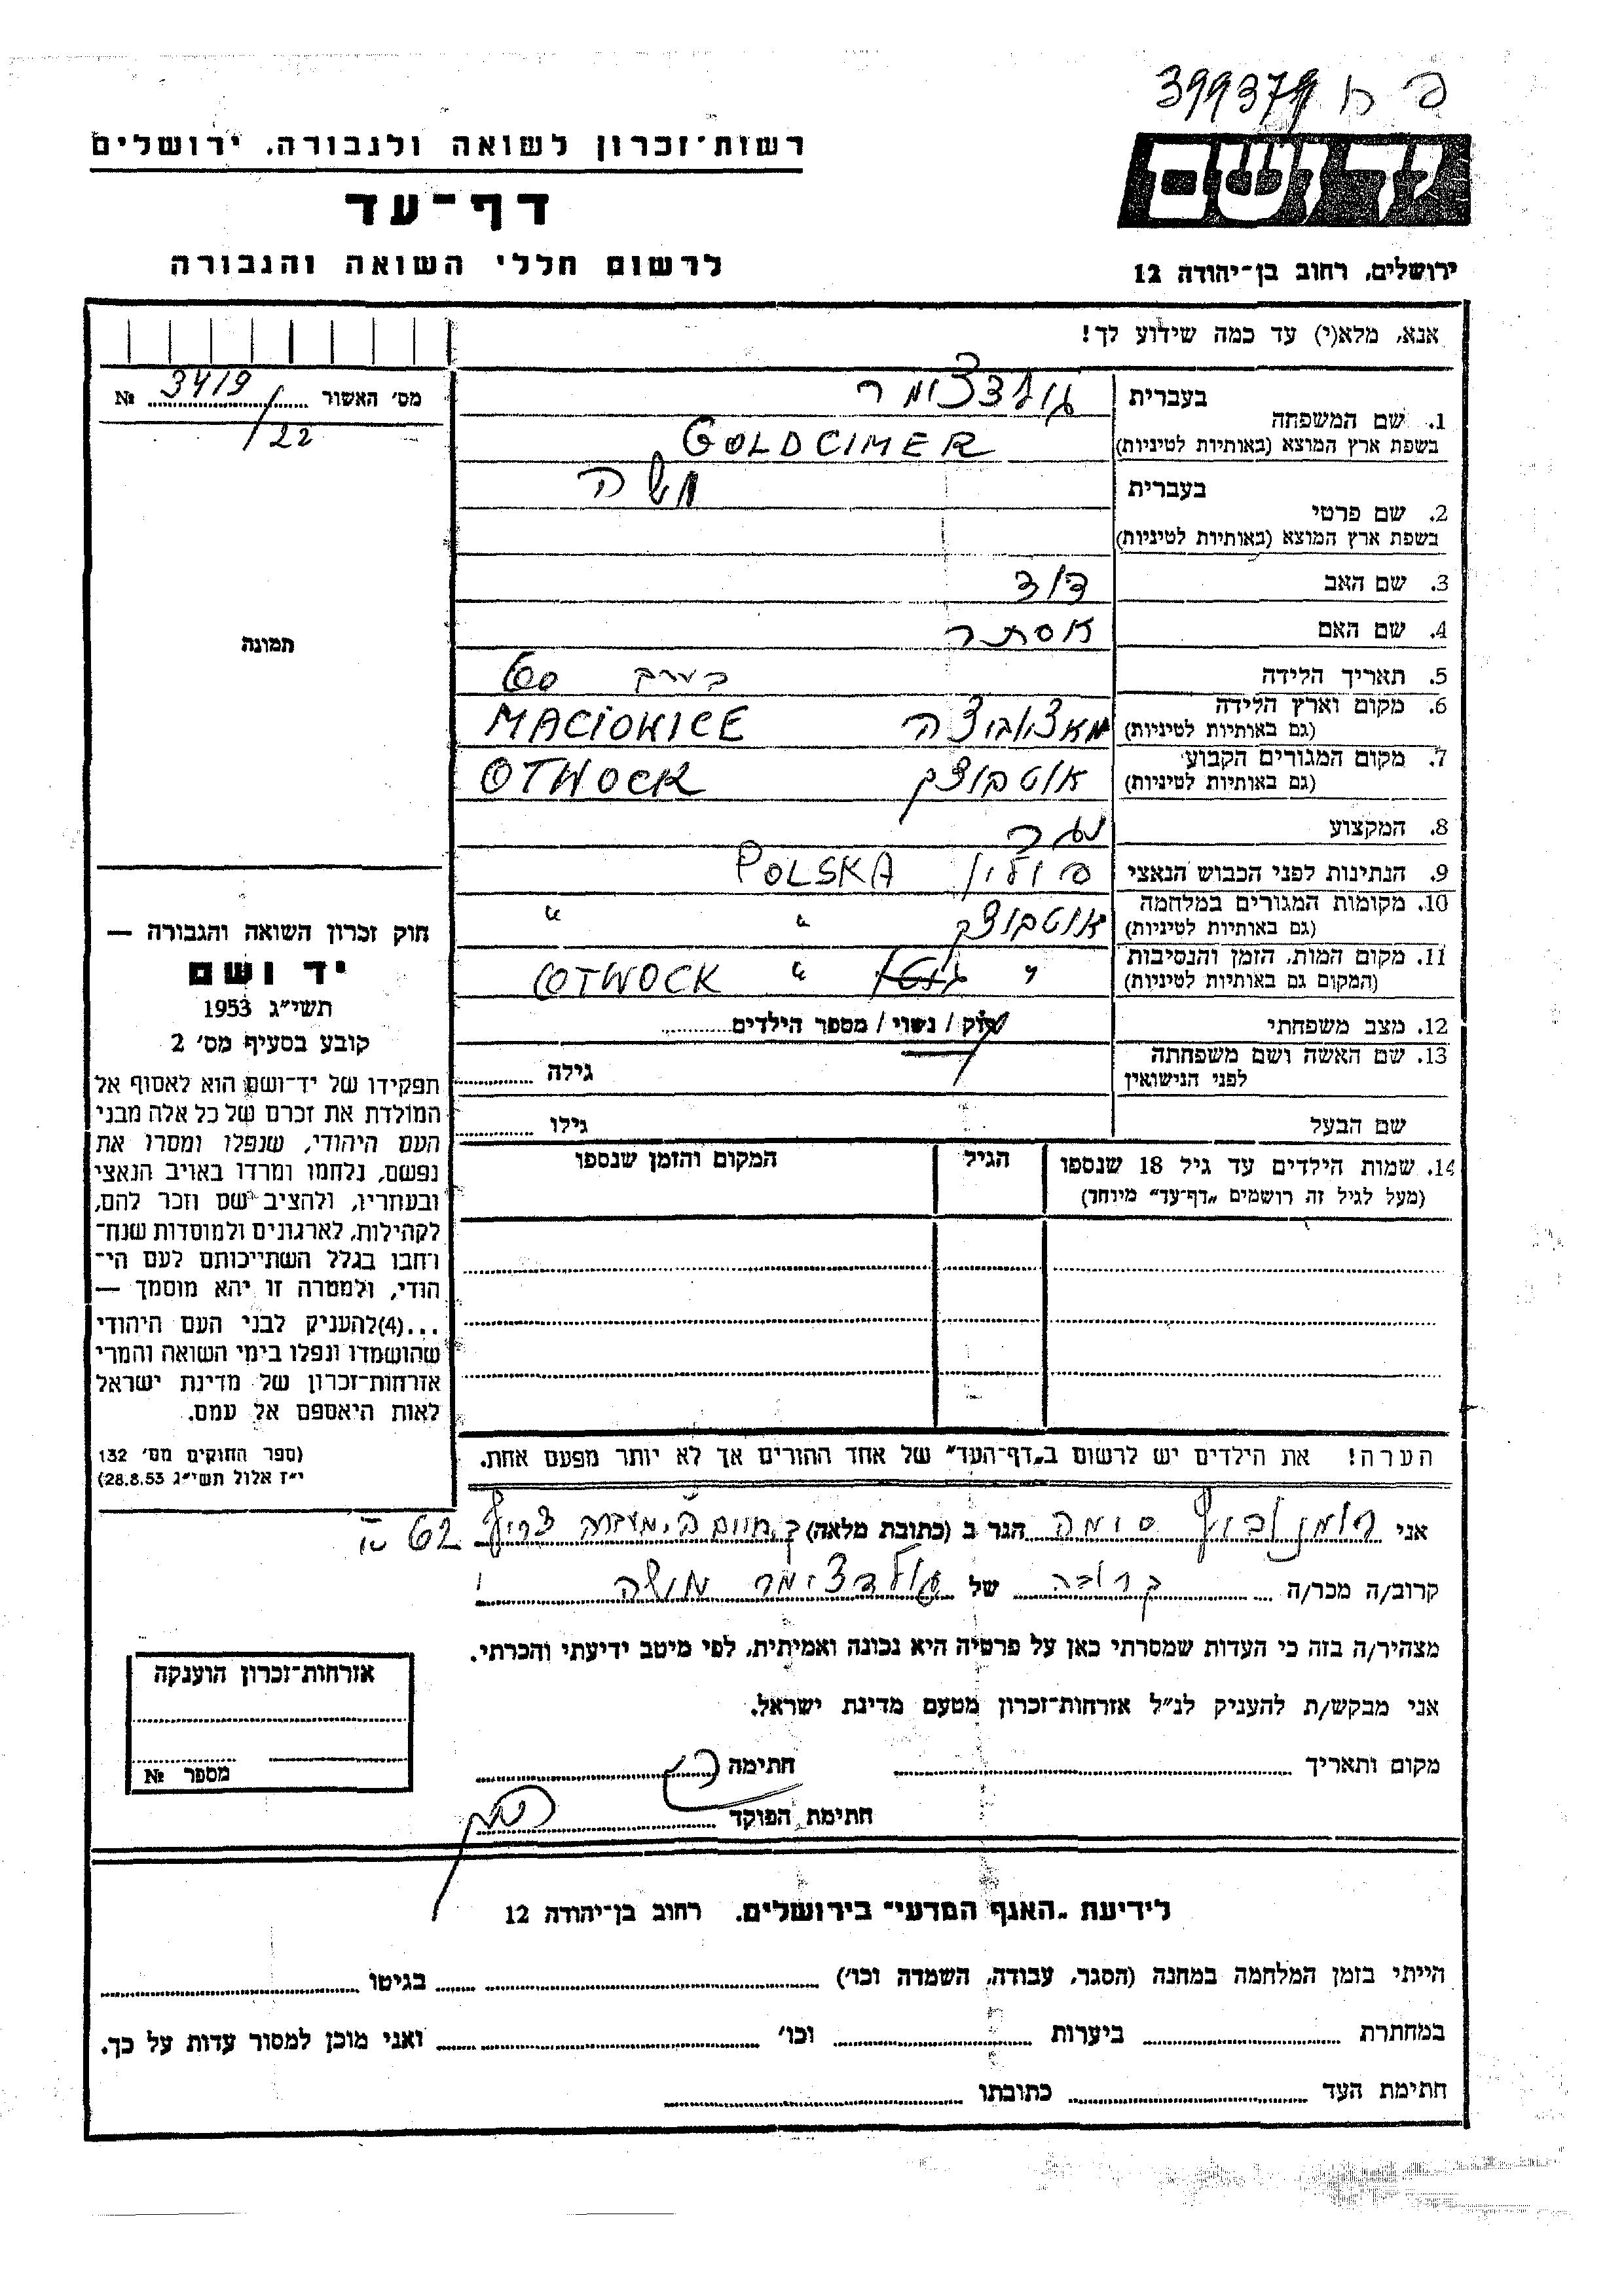 399379
יד ושם
רשות־זכרון לשואה ולגבורה, ירושלים
דף־עד
לרשום חללי השואה והגבורה
ירושלים, רחוב בן־יהודה 12
אנא, מלא(י) עד כמה שידוע לך!
מס׳ האשור 3419/22 №
1. שם המשפחה
בעברית גולדצימר
בשפת ארץ המוצא (באותיות לטיניות) GOLDCIMER
2. שם פרטי
בעברית משה
בשפת ארץ המוצא (באותיות לטיניות)
3. שם האב דוד
4. שם האם אסתר
5. תאריך הלידה בערך 60
6. מקום וארץ הלידה
(גם באותיות לטיניות) MACIOWICE
7. מקום המגורים הקבוע
(גם באותיות לטיניות) אוטבוצק OTWOCK
8. המקצוע
9. הנתינות לפני הכבוש הנאצי פולין POLSKA
10. מקומות המגורים במלחמה
(גם באותיות לטיניות) אוטבוצק " "
11. מקום המות, הזמן והנסיבות
(המקום גם באותיות לטיניות) " " OTWOCK
12. מצב משפחתי רוק / נשוי / מספר הילדים
13. שם האשה ושם משפחתה
לפני הנישואין גילה
שם הבעל גילו
14. שמות הילדים עד גיל 18 שנספו הגיל המקום והזמן שנספו
(מעל לגיל זה רושמים „דף־עד” מיוחד)
הערה! את הילדים יש לרשום ב„דף־העד” של אחד ההורים אך לא יותר מפעם אחת.
תמונה
חוק זכרון השואה והגבורה —
יד ושם
תשי״ג 1953
קובע בסעיף מס׳ 2
תפקידו של יד־ושם הוא לאסוף אל
המולדת את זכרם של כל אלה מבני
העם היהודי, שנפלו ומסרו את
נפשם, נלחמו ומרדו באויב הנאצי
ובעוזריו, ולהציב שם וזכר להם,
לקהילות, לארגונים ולמוסדות שנח־
רבו בגלל השתייכותם לעם הי־
הודי, ולמטרה זו יהא מוסמך —
...(4)להעניק לבני העם היהודי
שהושמדו ונפלו בימי השואה והמרי
אזרחות־זכרון של מדינת ישראל
לאות היאספם אל עמם.
(ספר החוקים מס׳ 132
י״ז אלול תשי״ג 28.8.53)
אני רומנוביץ סימה הגר ב (כתובת מלאה) ק. חיים צריף 62
קרוב/ה מכר/ה קרובה של גולדצימר משה
מצהיר/ה בזה כי העדות שמסרתי כאן על פרטיה היא נכונה ואמיתית, לפי מיטב ידיעתי והכרתי.
אני מבקש/ת להעניק לנ״ל אזרחות־זכרון מטעם מדינת ישראל.
מקום ותאריך חתימה
חתימת הפוקד
אזרחות־זכרון הוענקה
מספר №
לידיעת „האגף המדעי” בירושלים, רחוב בן־יהודה 12
הייתי בזמן המלחמה במחנה (הסגר, עבודה, השמדה וכו׳) בגיטו
במחתרת ביערות וכו׳ ואני מוכן למסור עדות על כך.
חתימת העד כתובתו